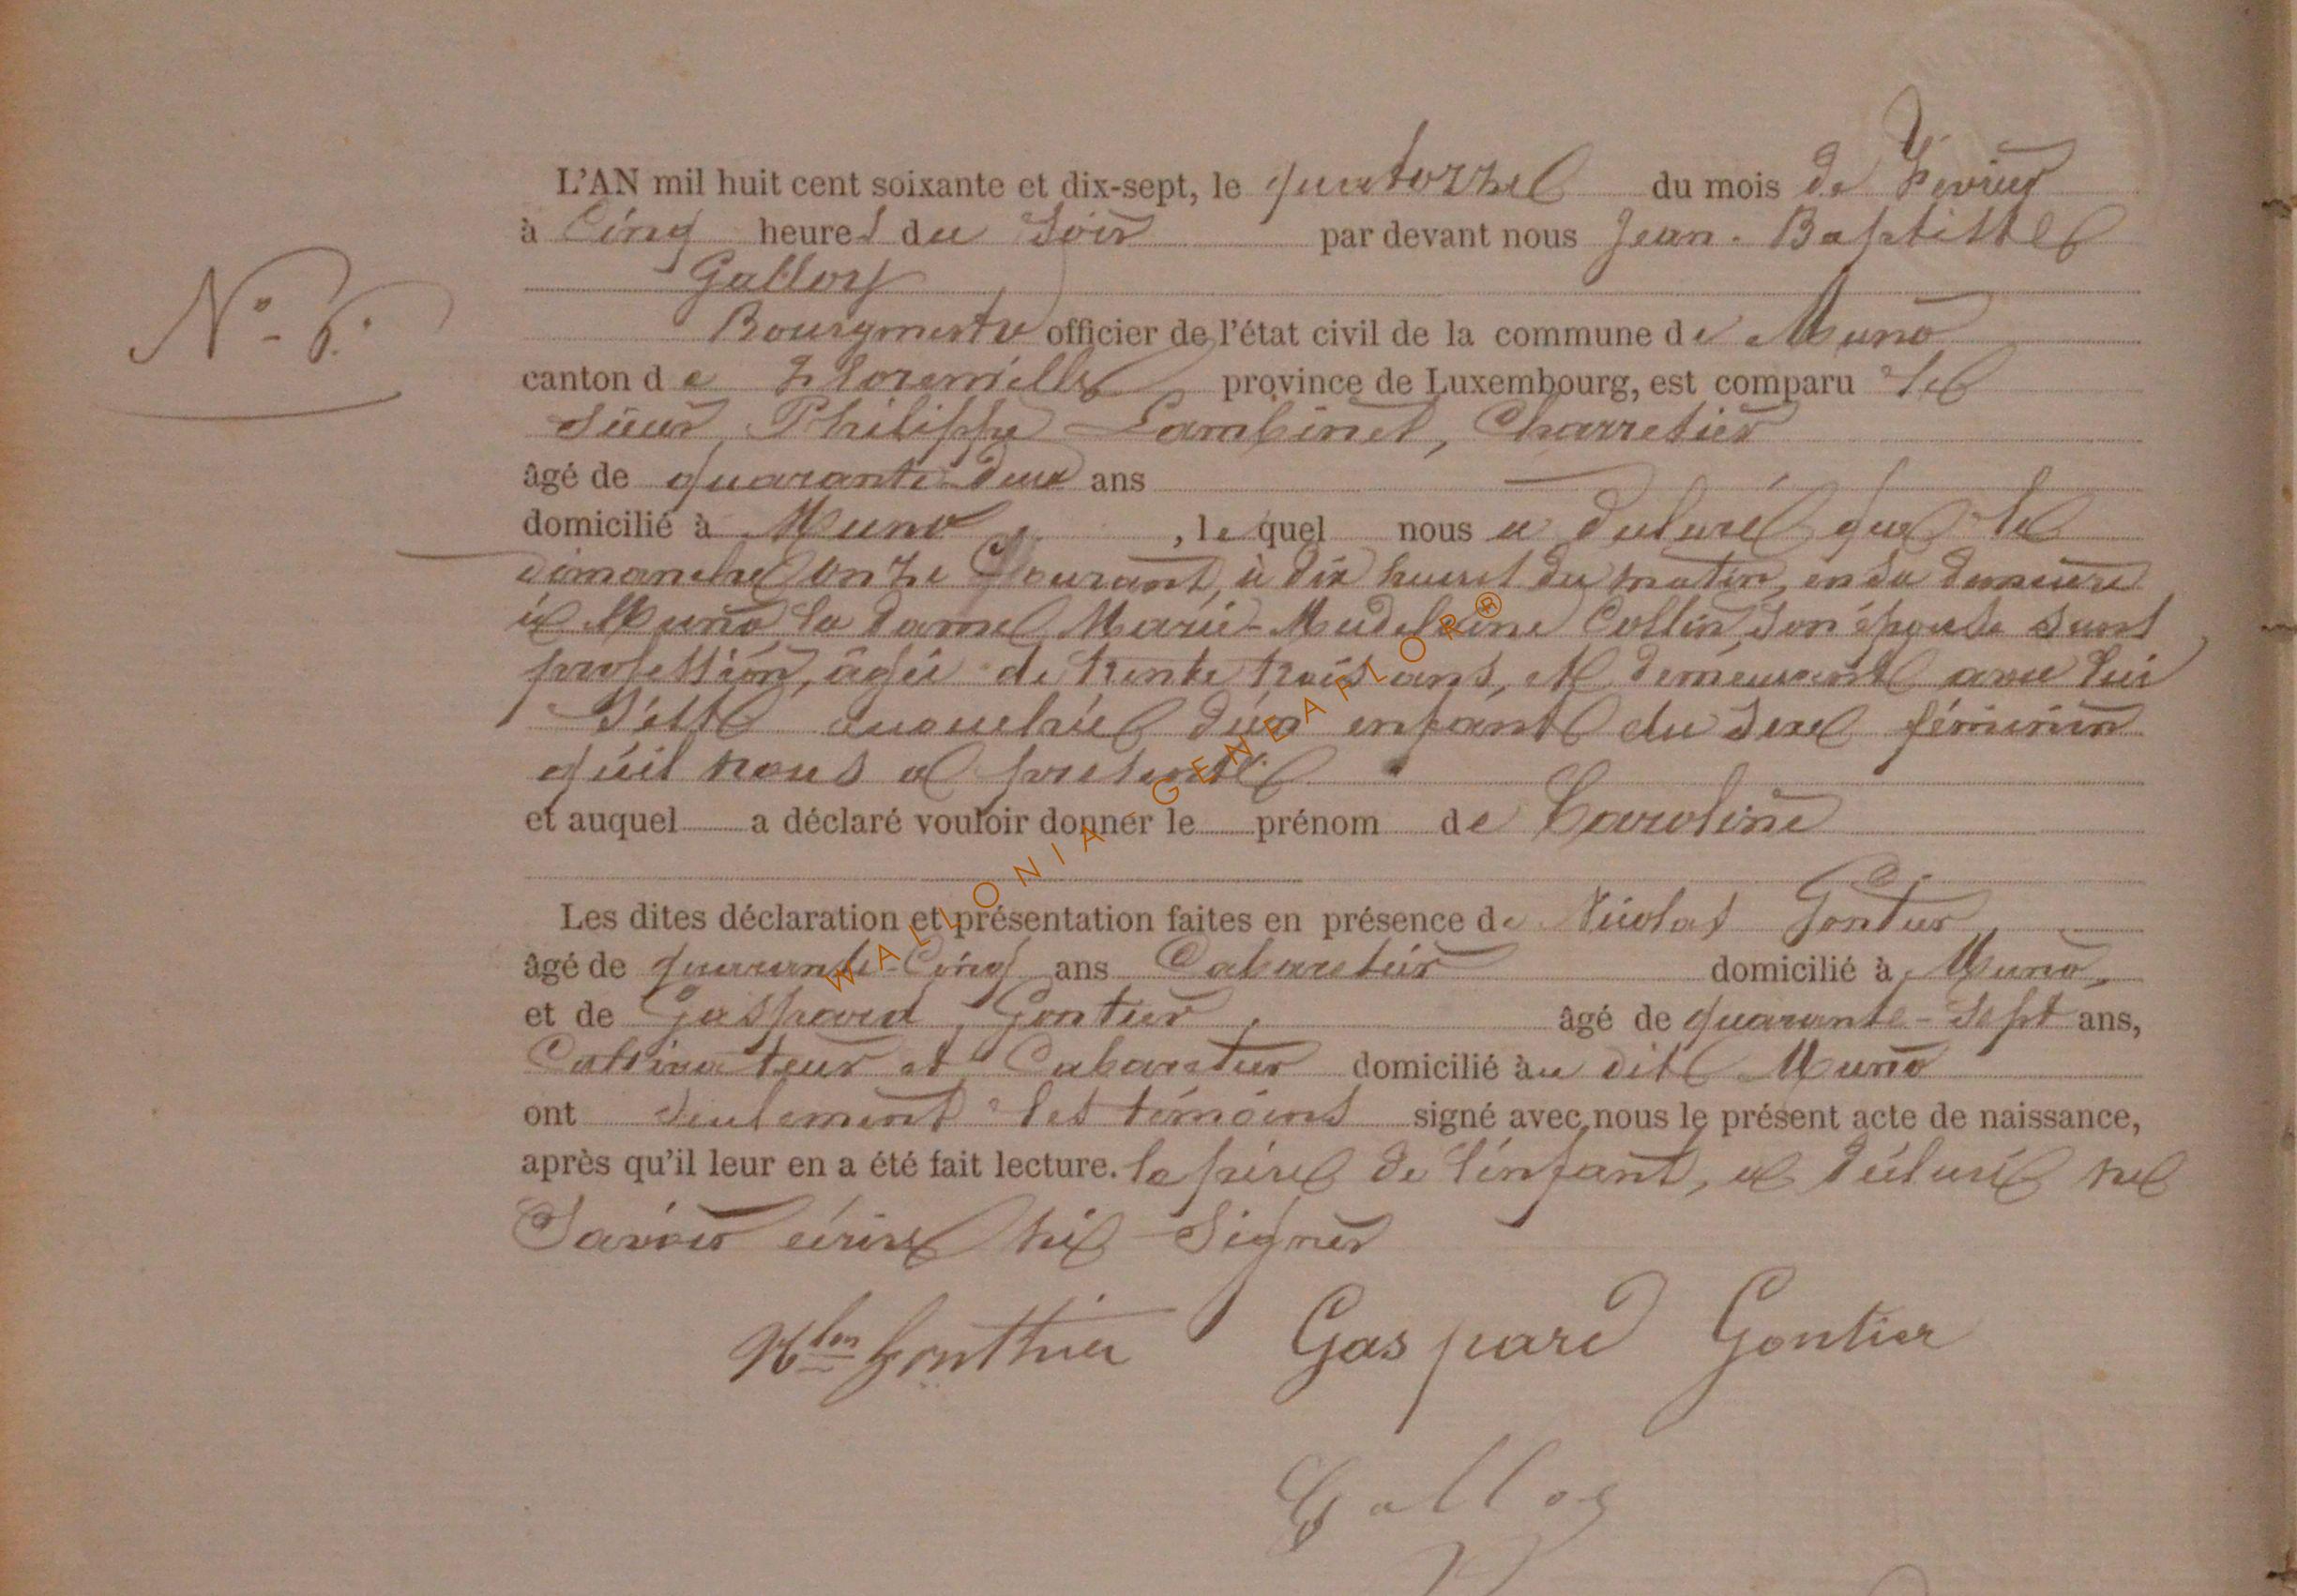 L'AN mil huit cent soixante et dix-sept, le quatorze du mois de Fevrier
à Cinq heures du Soir par devant nous Jean-Baptiste
Galloy
N° 6.
Bourgmestre officier de l'état civil de la commune de Muno
canton de Florenville province de Luxembourg, est comparu le
Sieur Philippe Lambinet, Charretier
âgé de quarante-deux ans
domicilié à Muno, le quel nous a déclaré que le
dimanche onze Courant, à dix heures du matin, en sa demeure
à Muno la dame Marie-Madelaine Collin son épouse sans
profession, âgée de trente trois ans, et demeurant avec lui
S'est accouchée d'un enfant du sexe féminin
qu'il nous a présenté
et auquel a déclaré vouloir donner le prénom de Caroline
Les dites déclaration et présentation faites en présence de Nicolas Gontier
âgé de quarante-Cinq ans Cabaretier domicilié à Muno,
et de Gaspard Gontier, âgé de quarante-Sept ans,
Cultivateur et Cabaretier domicilié au dit Muno
ont Seulement les témoins signé avec nous le présent acte de naissance,
après qu'il leur en a été fait lecture. le père de l'enfant, a déclaré ne
Savoir écrire ni Signer
Nlas Gonthier Gaspard Gontier
Galloy
WALLONIA-GENEAFLOR®